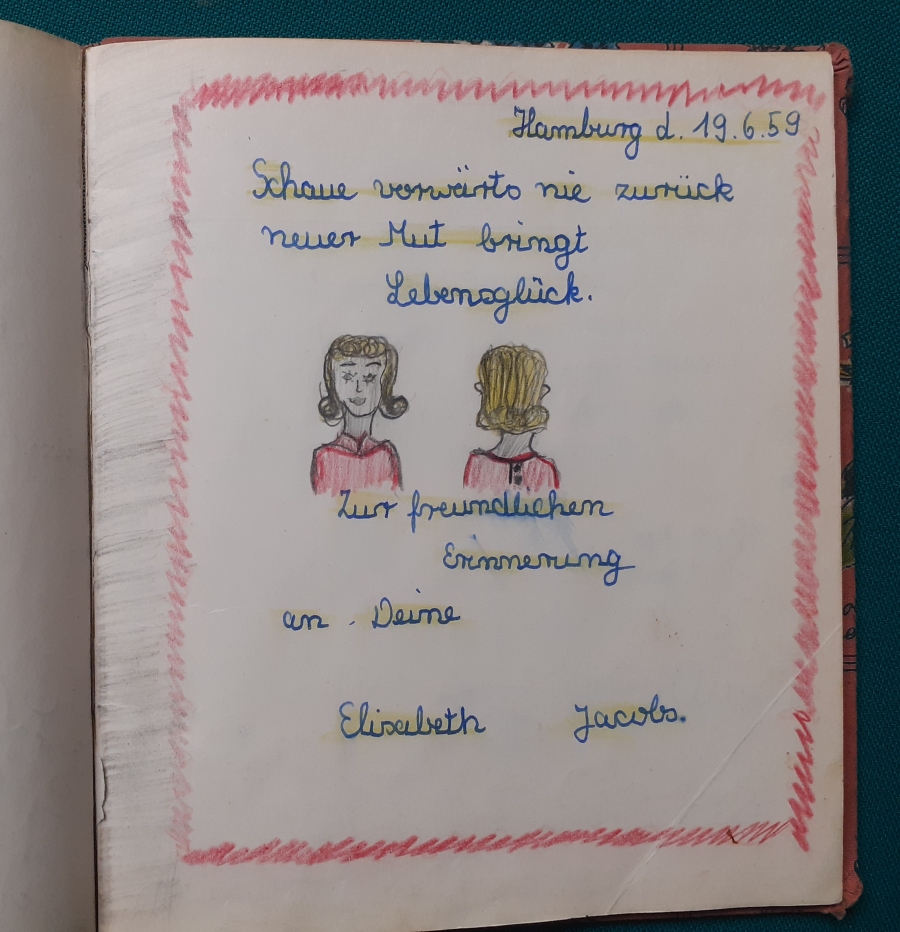 Hamburg d. 19.6.59
Schaue vorwärts nie zurück
neuer Mut bringt
Lebensglück.
Zur freundlichen
Erinnerung
an Deine
Elisabeth Jacobs.